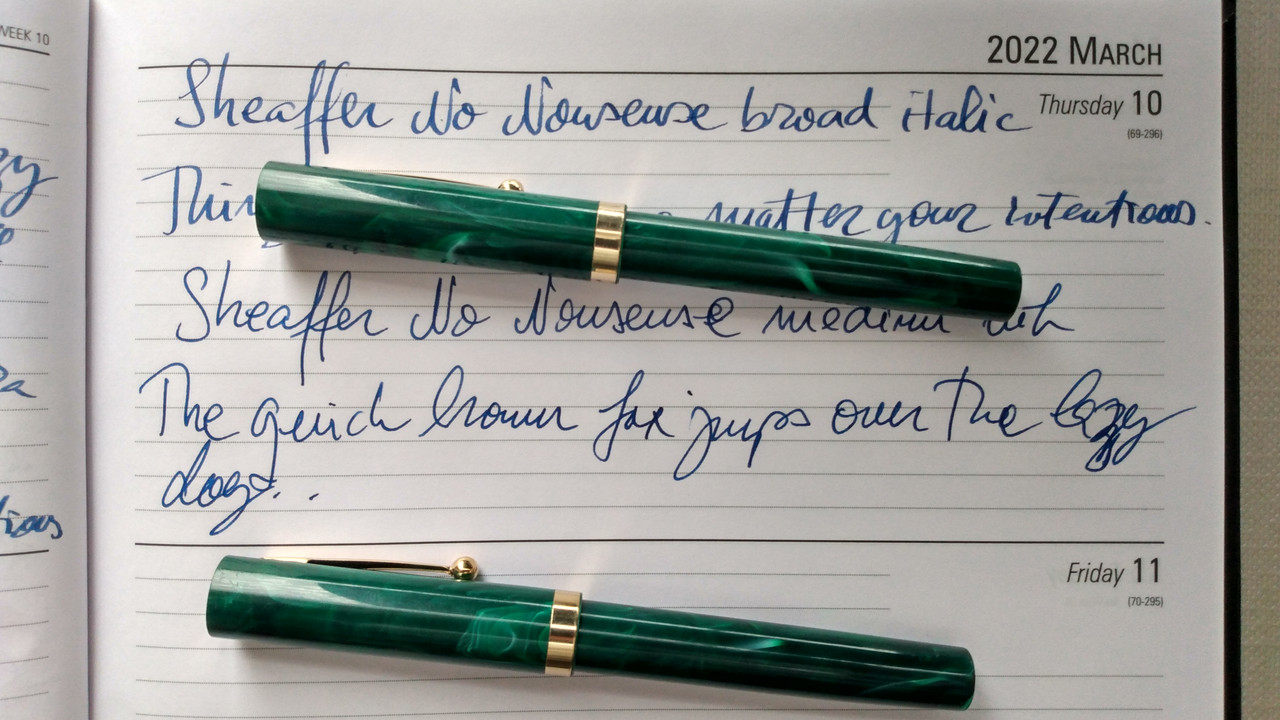 WEEK 10
2022 MARCH
Thursday 10
(69-296)
Sheaffer No Nonsense broad italic
matter your intentions.
Sheaffer No Nonsense medium
The quick brown fox jumps over the lazy
dogs...
Friday 11
(70-295)